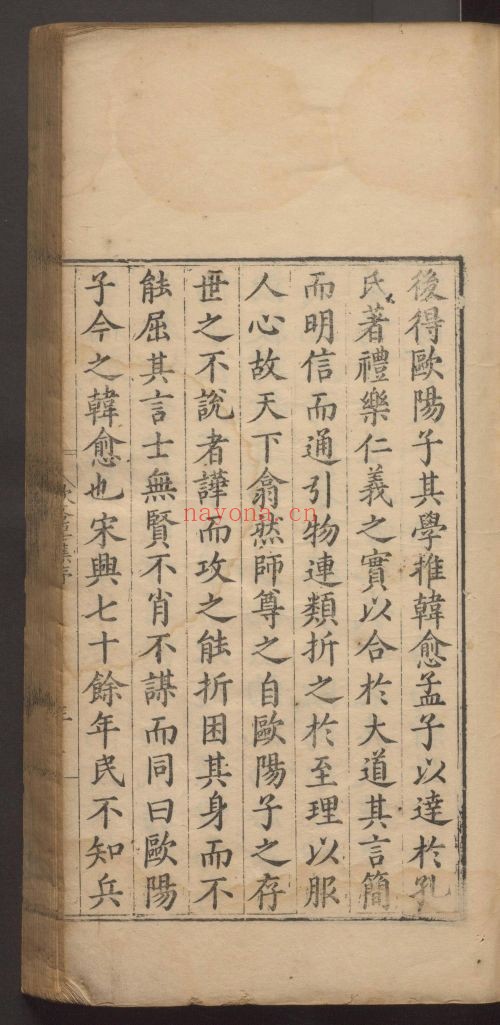 後得歐陽子其學推韓愈孟子以達於孔
氏著禮樂仁義之實以合於大道其言簡
而明信而通引物連類折之於至理以服
人心故天下翕然師尊之自歐陽子之存
世之不說者譁而攻之能折困其身而不
能屈其言士無賢不肖不謀而同曰歐陽
子今之韓愈也宋興七十餘年民不知兵
nayona.cn